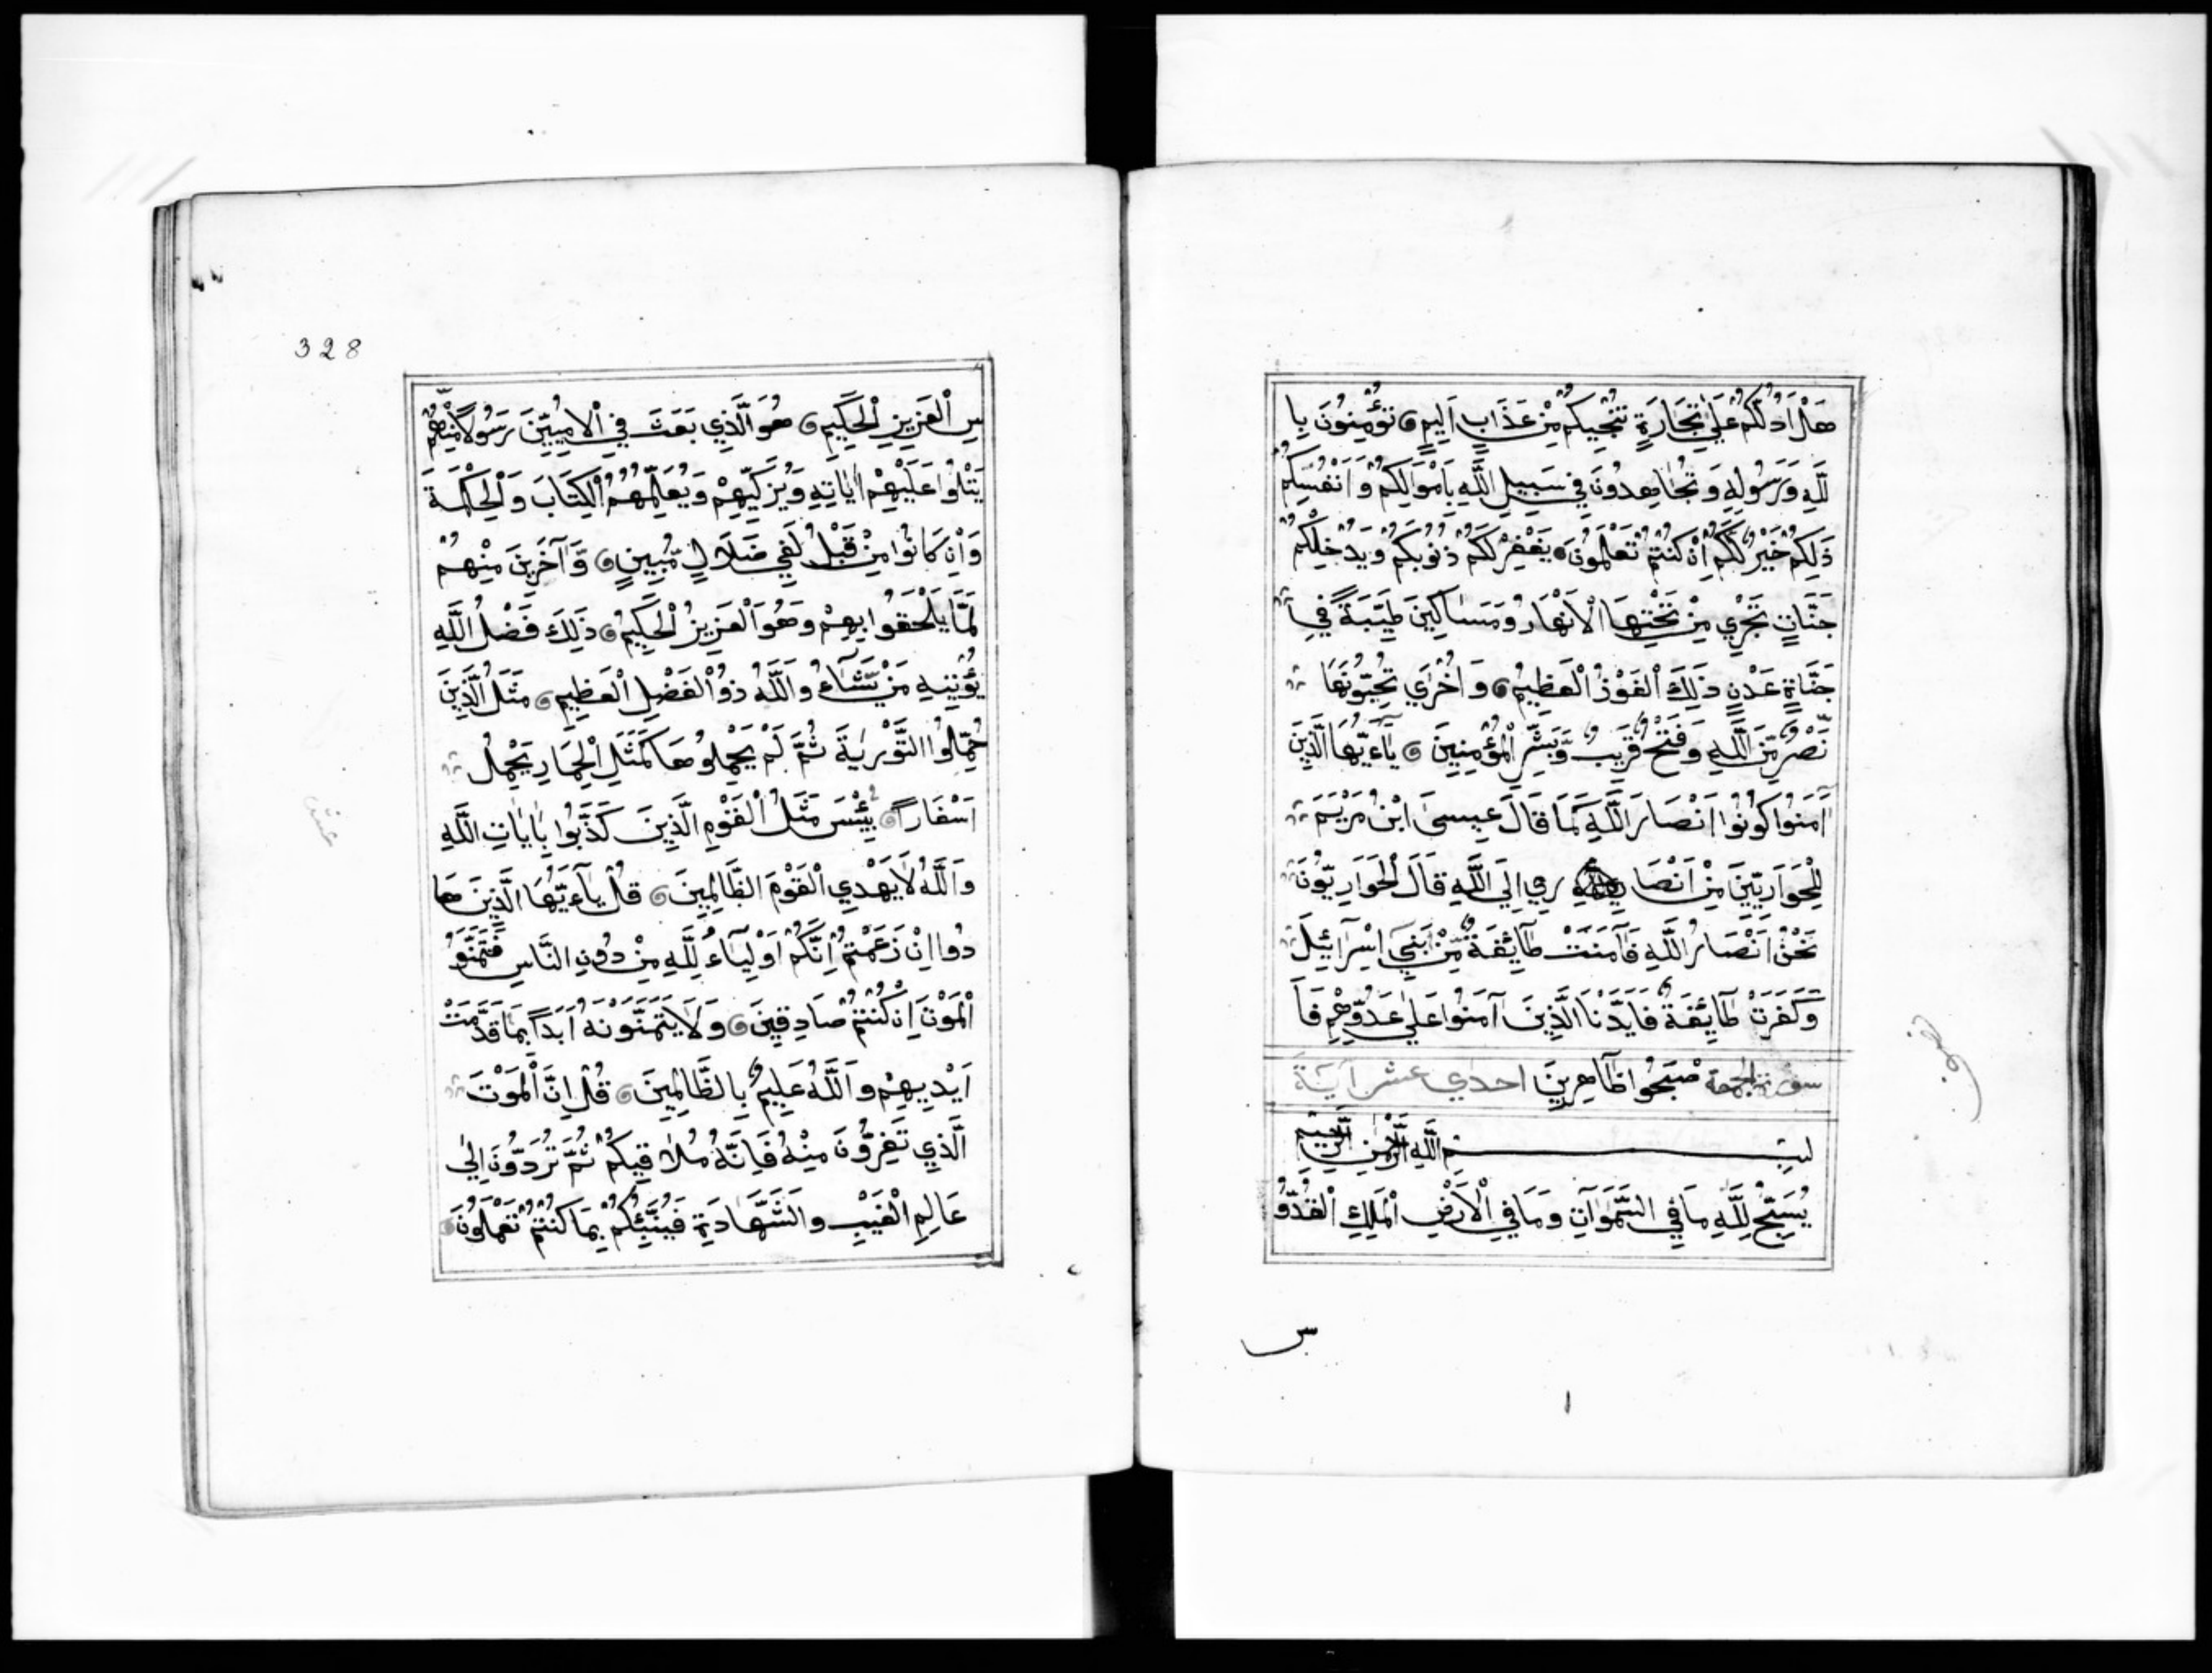 هَلْ اَدُلُّكُمْ عَلٰي تِجَارَةٍ تُنْجِيكُمْ مِّنْ عَذَابٍ اَلِيمٍ تُؤْمِنُونَ بِا
للَّهِ وَرَسُولِهِ وَتُجَاهِدُونَ فِي سَبِيلِ اللَّهِ بِاَمْوَالِكُمْ وَاَنْفُسِكُمْ
ذَلِكُمْ خَيْرٌ لَّكُمْ اِنْ كُنْتُمْ تَعْلَمُونَ يَغْفِرْ لَكُمْ ذُنُوبَكُمْ وَيُدْخِلْكُمْ
جَنَّاتٍ تَجْرِي مِنْ تَحْتِهَا الْاَنْهَارُ وَمَسَاكِينَ طَيِّبَةً فِي
جَنَّاةِ عَدْنٍ ذَلِكَ الْفَوْزُ الْعَظِيمُ وَاُخْرَي تُحِبُّونَهَا
نَصْرٌ مِّنَ اللَّهِ وَفَتْحٌ قَرِيبٌ وَّبَشِّرِ الْمُؤْمِنِينَ يَآءَيُّهَا الَّذِينَ
اٰمَنُوا كُونُوا اَنْصَارَ اللَّهِ كَمَا قَالَ عِيسَى ابْنُ مَرْيَمَ
لِلْحَوَارِيِّينَ مِنْ اَنْصَا رِي اِلَي اللَّهِ قَالَ الْحَوَارِيُّونَ
نَحْنُ اَنْصَارُ اللَّهِ فَآمَنَتْ طَآئِفَةٌ مِّنْ بَنِي اِسْرَآئِيلَ
وَكَفَرَتْ طَآئِفَةٌ فَاَيَّدْنَا الَّذِينَ آمَنُوا عَلٰي عَدُوِّهِمْ فَاَ
سورة الجمعة صْبَحُوا ظَاهِرِينَ احدٰي عشر آيَةً
بِسْمِ اللَّهِ الرَّحْمٰنِ الرَّحِيمِ
يُسَبِّحُ لِلَّهِ مَا فِي السَّمَوَاتِ وَمَا فِي الْاَرْضِ الْمَلِكِ الْقُدُّو
س
328
سِ الْعَزِيزِ الْحَكِيمِ هُوَ الَّذِي بَعَثَ فِي الْاُمِّيِّينَ رَسُولًا مِّنْهُمْ
يَتْلُوا عَلَيْهِمْ اٰيَاتِهِ وَيُزَكِّيهِمْ وَيُعَلِّمُهُمُ الْكِتَابَ وَالْحِكْمَةَ
وَاِنْ كَانُوا مِنْ قَبْلُ لَفِي ضَلَالٍ مُّبِينٍ وَّآخَرِينَ مِنْهُمْ
لَمَّا يَلْحَقُوا بِهِمْ وَهُوَ الْعَزِيزُ الْحَكِيمُ ذَلِكَ فَضْلُ اللَّهِ
يُؤْتِيهِ مَنْ يَّشَآءُ وَاللَّهُ ذُو الْفَضْلِ الْعَظِيمِ مَثَلُ الَّذِينَ
حُمِّلُوا التَّوْرٰيةَ ثُمَّ لَمْ يَحْمِلُوهَا كَمَثَلِ الْحِمَارِ يَحْمِلُ
اَسْفَارًا بِئْسَ مَثَلُ الْقَوْمِ الَّذِينَ كَذَّبُوا بِاٰيَاتِ اللَّهِ
وَاللَّهُ لَا يَهْدِي الْقَوْمَ الظَّالِمِينَ قُلْ يَآءَيُّهَا الَّذِينَ هَا
دُوا اِنْ زَعَمْتُمْ اِنَّكُمْ اَوْلِيَآءُ لِلَّهِ مِنْ دُونِ النَّاسِ فَتَمَنَّوُ
الْمَوْتَ اِنْ كُنْتُمْ صَادِقِينَ وَلَا يَتَمَنَّوْنَهُ اَبَدًا بِمَا قَدَّمَتْ
اَيْدِيهِمْ وَاللَّهُ عَلِيمٌ بِالظَّالِمِينَ قُلْ اِنَّ الْمَوْتَ
الَّذِي تَفِرُّونَ مِنْهُ فَاِنَّهُ مُلَاقِيكُمْ ثُمَّ تُرَدُّونَ اِلٰي
عَالِمِ الْغَيْبِ وَالشَّهَادَةِ فَيُنَبِّئُكُمْ بِمَا كُنْتُمْ تَعْمَلُونَ